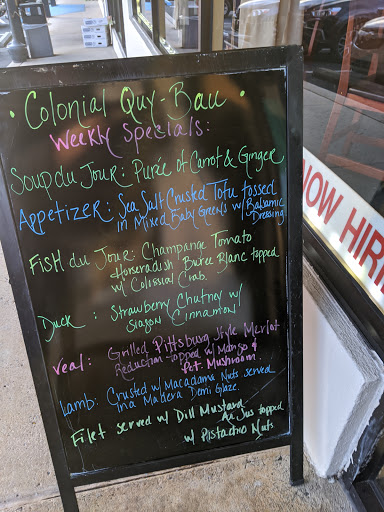 • Colonial Quy-Bau •
Weekly Specials:
Soup du Jour: Purée of Carrot & Ginger
Appetizer: Sea Salt Crusted Tofu tossed
in Mixed Baby Greens w/ Balsamic
Dressing
Fish du Jour: Champange Tomato
Horseradish Buree Blanc topped
w/ Colossial Crab.
Duck : Strawberry Chutney w/
Siagon Cinnamon
Veal: Grilled Pittsburg Style Merlot
Reduction topped w/ Mango &
Pet. Mushroom.
Lamb: Crusted w/ Macadamia Nuts served
in a Madera Demi Glaze.
Filet served w/ Dill Mustard
Au Jus topped
w/ Pistachio Nuts
NOW HIRI